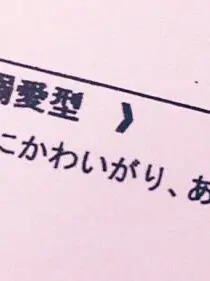 溺愛型 》
にかわいがり、あ